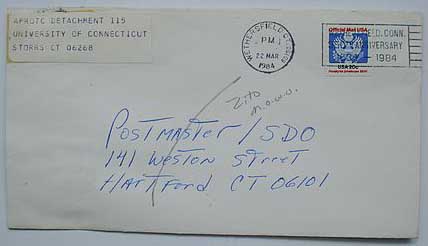 AFROTC DETACHMENT 115
UNIVERSITY OF CONNECTICUT
STORRS CT 06268
WETHERSFIELD CT
PM
22 MAR
1984
Official Mail USA
USA 20c
CONN.
ANNIVERSARY
1984
POSTMASTER/SDO
141 WESTON STREET
HARTFORD CT 06101